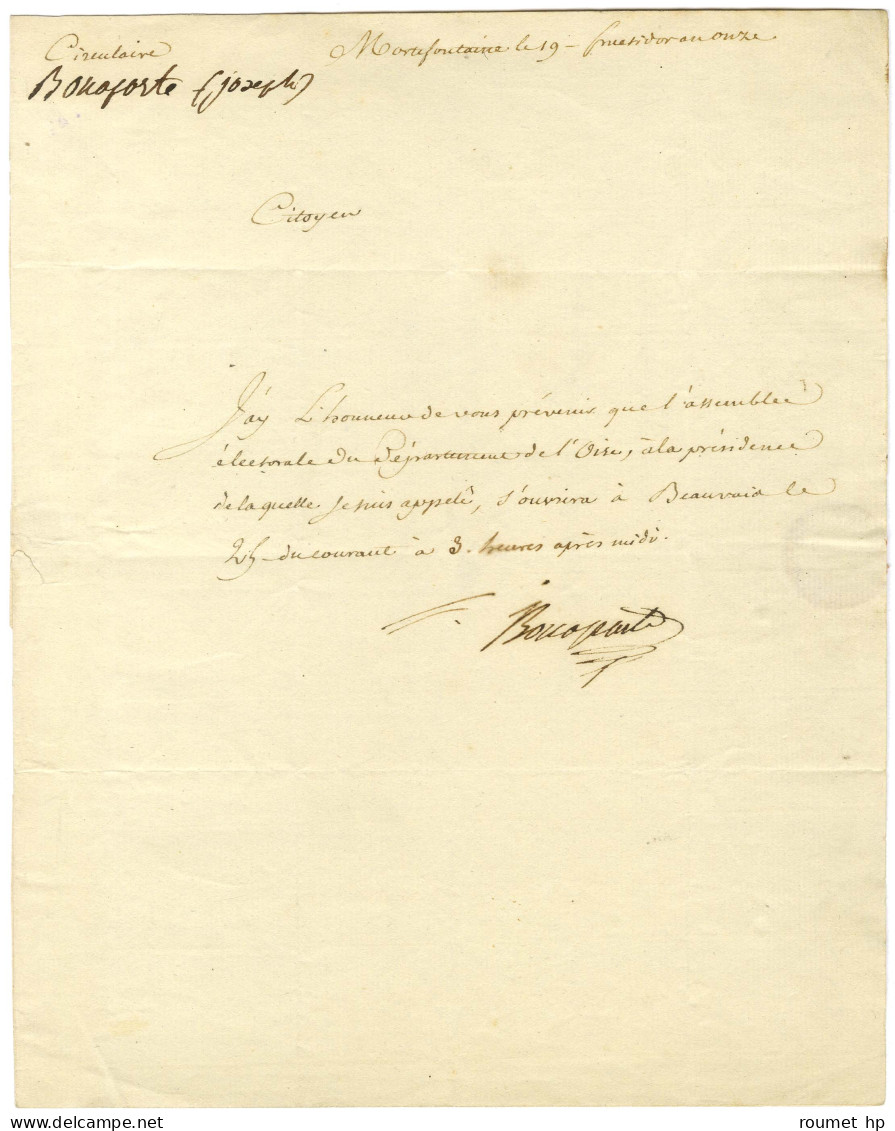 Circulaire
Mortefontaine le 19 - fructidor an onze
Bonaparte (joseph)
Citoyen
J'ay L'honneur de vous prévenir que l'assemblée
électorale du Département de l'Oise, à la présidence
de laquelle Je suis appelé, s'ouvrira à Beauvais le
25 du courant à 3. heures après midi.
Bonaparte
www.delcampe.net
roumet hp